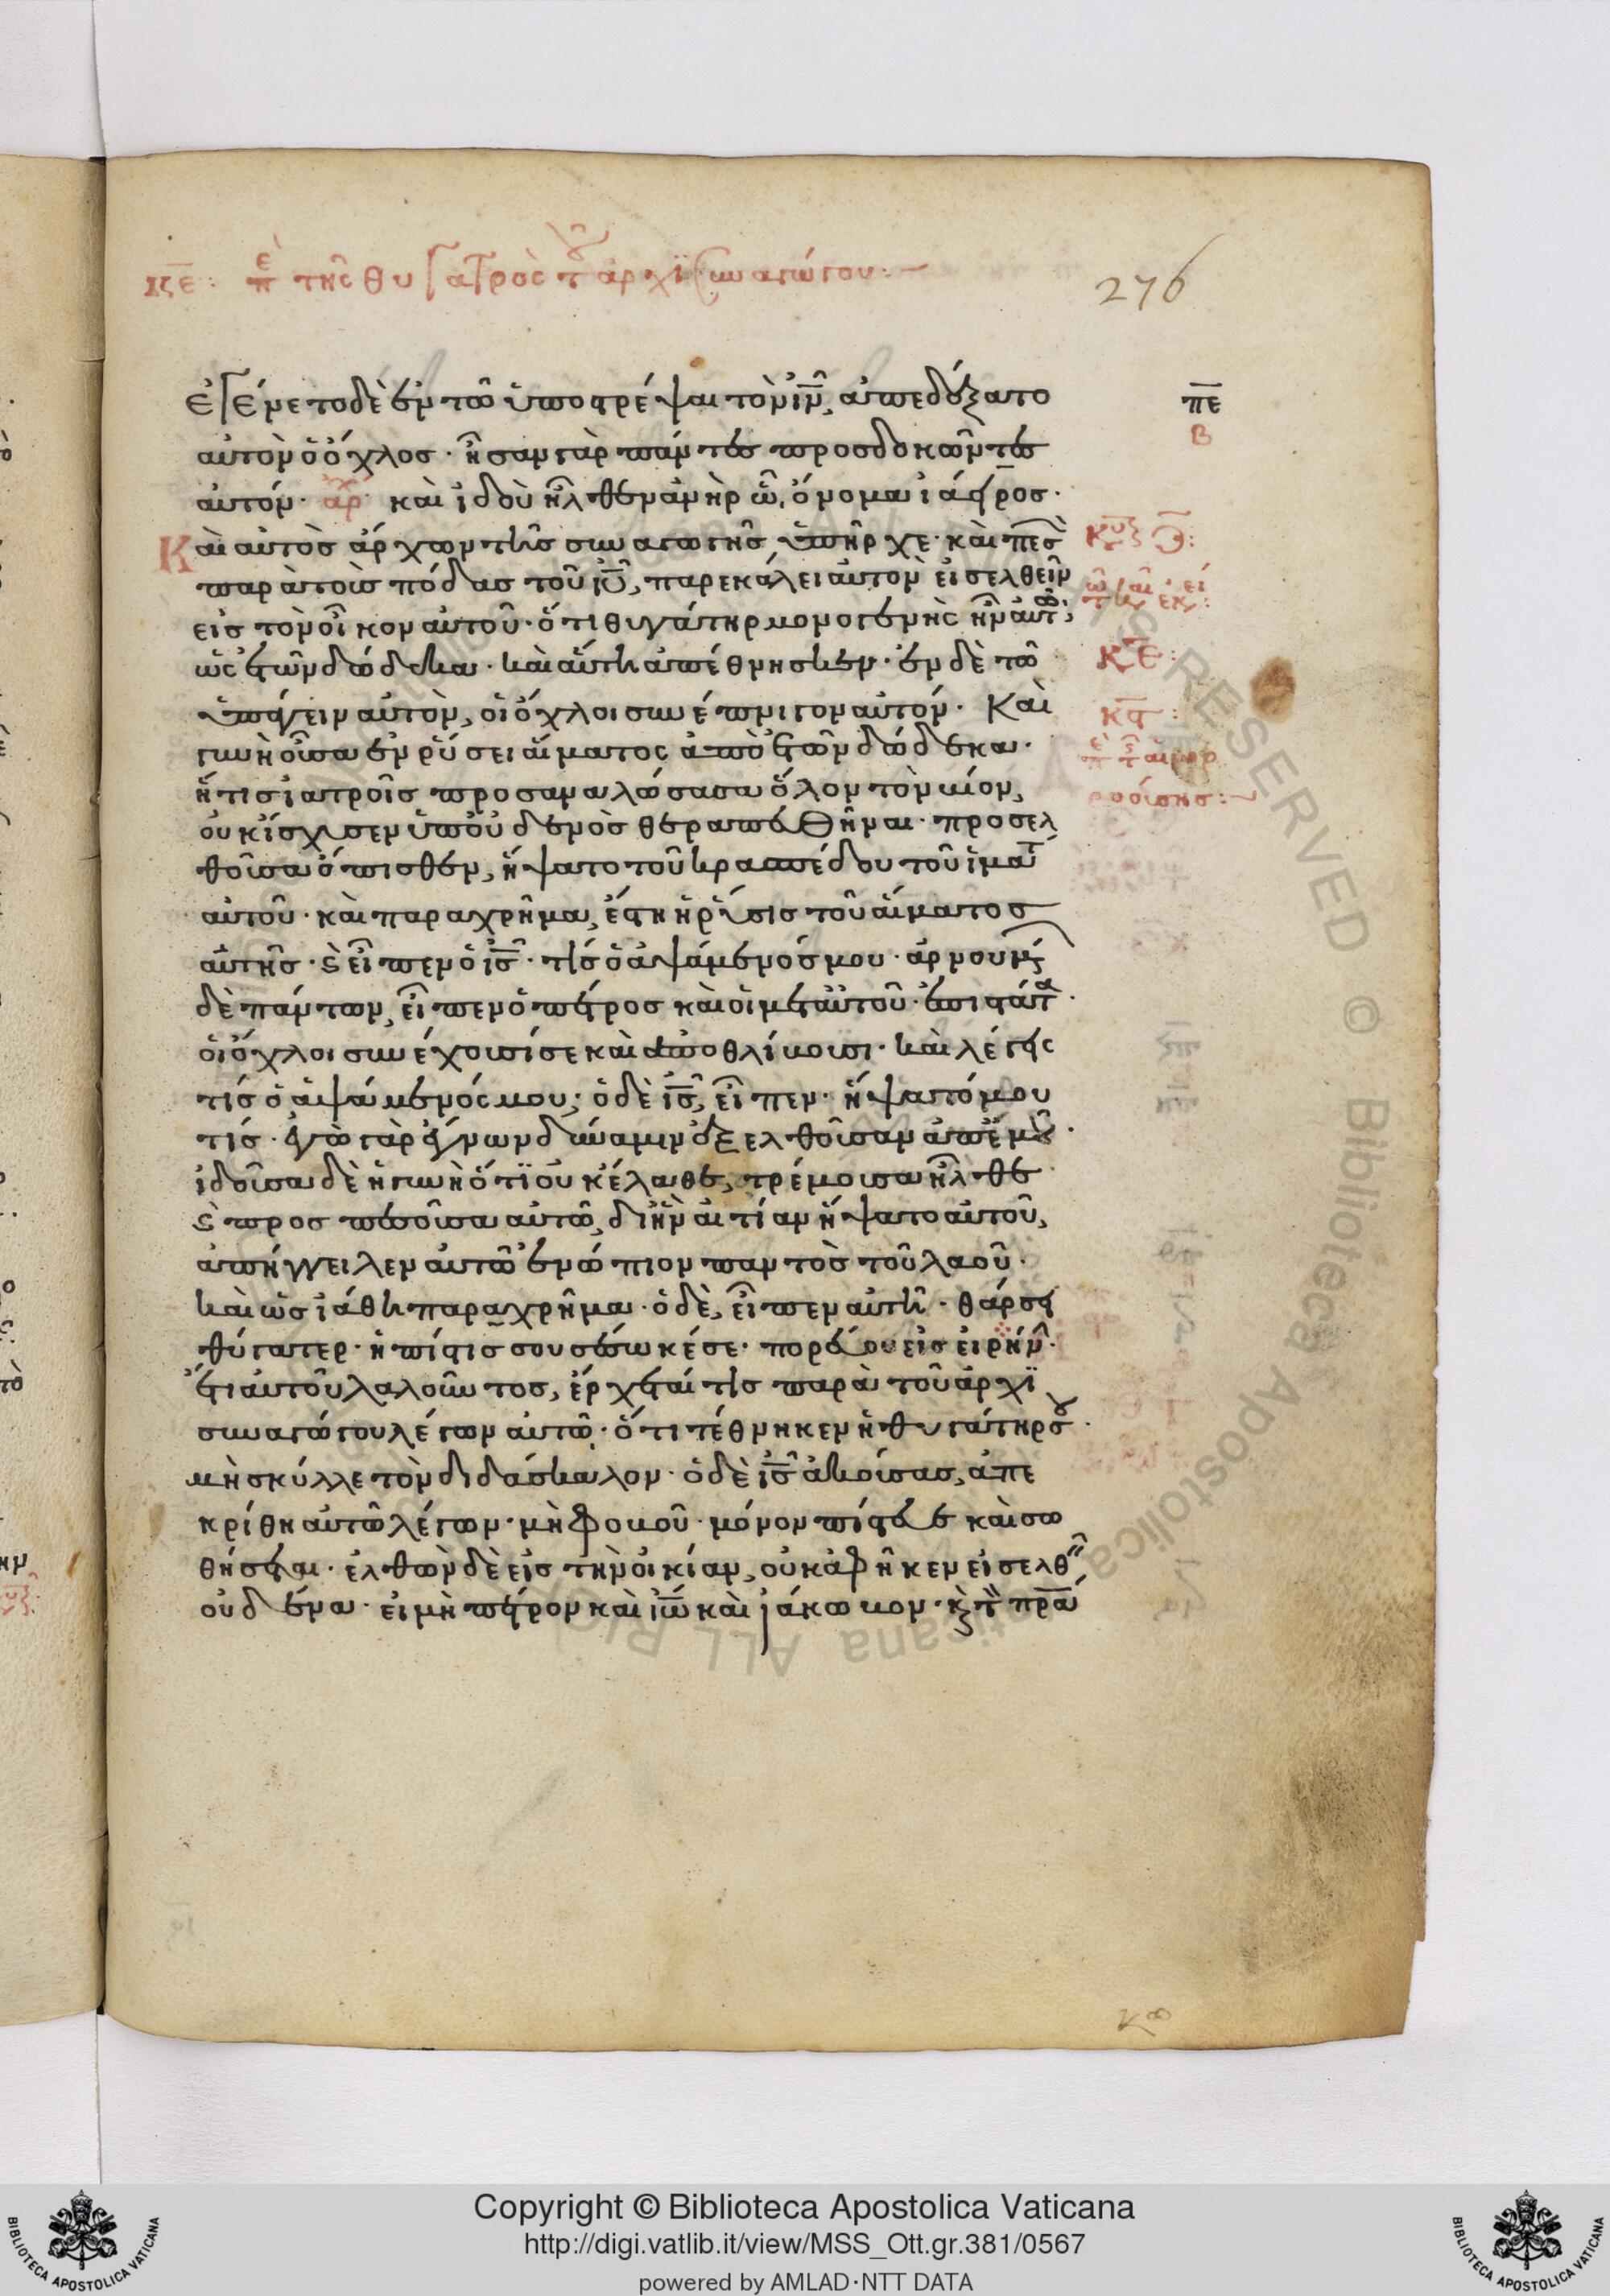 κε: ἐπ τῆς θυγατρὸς τοῦ ἀρχϊσυναγώγου:
276
ἐγένετο δὲ ἐν τῶ ὑποστρέψαι τὸν ἰν, ἀπεδέξατο
πε
αὐτὸν ὁ ὄχλος· ἦσαν γὰρ πάντες προσδοκῶντες
β
αὐτόν· ἀρ καὶ ἰδοὺ ἦλθεν ἀνὴρ ὧ, ὄνομα ἰάειρος·
Καὶ αὐτὸς ἄρχων τῆς συναγωγῆς ὑπῆρχε· καὶ πεσὼ
παρὰ τοὺς πόδας τοῦ ἰυ, παρεκάλει αὐτὸν εἰσελθεῖν
εἰς τὸν οἶκον αὐτοῦ· ὅτι θυγάτηρ μονογενὴς ἦν αὐτῶ,
ὡς ἐτῶν δώδεκα· καὶ αὕτη ἀπέθνησκεν· ἐν δὲ τῶ
κε:
ὑπάγειν αὐτὸν, οἱ ὄχλοι συνέπνιγον αὐτόν· Καὶ
κϛ:
γυνὴ οὖσα ἐν ῥύσει αἵματος ἀπὸ ἐτῶν δώδεκα·
ἐπ τ αἱμορ
ἥτις ἰατροῖς προσαναλώσασα ὅλον τὸν βίον,
ροούσης:
οὐκ ἴσχυσεν ὑπ οὐδενὸς θεραπευθῆναι· προσελ
θοῦσα ὄπισθεν, ἥψατο τοῦ κρασπέδου τοῦ ἱματ
αὐτοῦ· καὶ παραχρῆμα, ἔστη ἡ ῥύσις τοῦ αἵματος
αὐτῆς· ϗ εἶπεν ὁ ἰς· τίς ὁ ἁψάμενός μου· ἀρνουμ
δὲ πάντων, εἶπεν ὁ πέτρος καὶ οἱ μετ αὐτοῦ· ἐπιστάτα·
οἱ ὄχλοι συνέχουσί σε καὶ ἀποθλίβουσι· καὶ λέγεις
τίς ὁ ἁψάμενός μου; ὁ δὲ ἰς, εἶπεν· ἥψατό μου
τίς· ἐγὼ γὰρ ἔγνων δύναμιν ἐξελθοῦσαν ἀπ ἐμοῦ·
ἰδοῦσα δὲ ἡ γυνὴ ὅτϊ οὐκ ἔλαθε, τρέμουσα ἦλθε
ϗ προσπεσοῦσα αὐτῶ, δι ἣν αἰτίαν ἥψατο αὐτοῦ,
ἀπήγγειλεν αὐτῶ ἐνώπιον παντὸς τοῦ λαοῦ·
καὶ ὡς ἰάθη παραχρῆμα· ὁ δὲ, εἶπεν αὐτῆ· θάρσει
θύγατερ· ἡ πίστις σου σέσωκέ σε· πορεύου εἰς εἰρήν·
ἔτι αὐτοῦ λαλοῦντος, ἔρχεταί τις παρὰ τοῦ ἀρχϊ
συναγώγου λέγων αὐτῶ· ὅτι τέθνηκεν ἡ θυγάτηρ σου·
μὴ σκύλλε τὸν διδάσκαλον· ὁ δὲ ἰς ἀκούσας, ἀπε
κρίθη αὐτῶ λέγων· μὴ φοβοῦ· μόνον πίστευε καὶ σω
θήσεται· ἐλθὼν δὲ εἰς τὴν οἰκίαν, οὐκ ἀφῆκεν εἰσελθ
οὐδένα· εἰ μὴ πέτρον καὶ ἰω καὶ ἰάκωβον· κ τ πρα
Copyright © Biblioteca Apostolica Vaticana
http://digi.vatlib.it/view/MSS_Ott.gr.381/0567
powered by AMLAD·NTT DATA